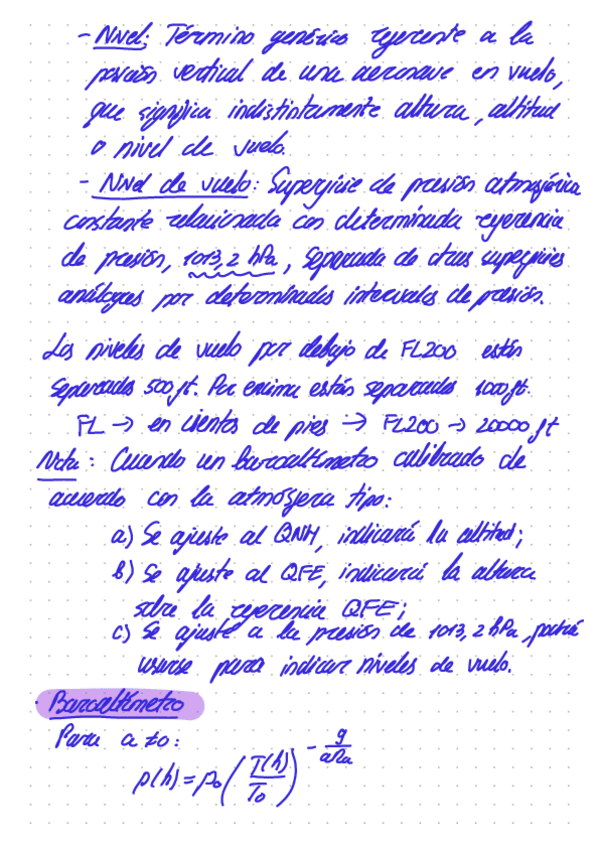 - Nivel: Término genérico referente a la
posición vertical de una aeronave en vuelo,
que significa indistintamente altura, altitud
o nivel de vuelo.
- Nivel de vuelo: Superficie de presión atmosférica
constante relacionada con determinada referencia
de presión, 1013,2 hPa, separada de otras superficies
análogas por determinados intervalos de presión.
Los niveles de vuelo por debajo de FL200 están
separados 500 ft. Por encima están separados 1000 ft.
FL → en cientos de pies → FL200 → 20000 ft
Nota: Cuando un baroaltímetro calibrado de
acuerdo con la atmósfera tipo:
a) Se ajuste al QNH, indicará la altitud;
b) Se ajuste al QFE, indicará la altura
sobre la referencia QFE;
c) Se ajuste a la presión de 1013,2 hPa, podrá
usarse para indicar niveles de vuelo.
· Baroaltímetro
Para a ≠ 0:
p(h) = p₀ (T(h)/T₀)^(-g/(aRa))